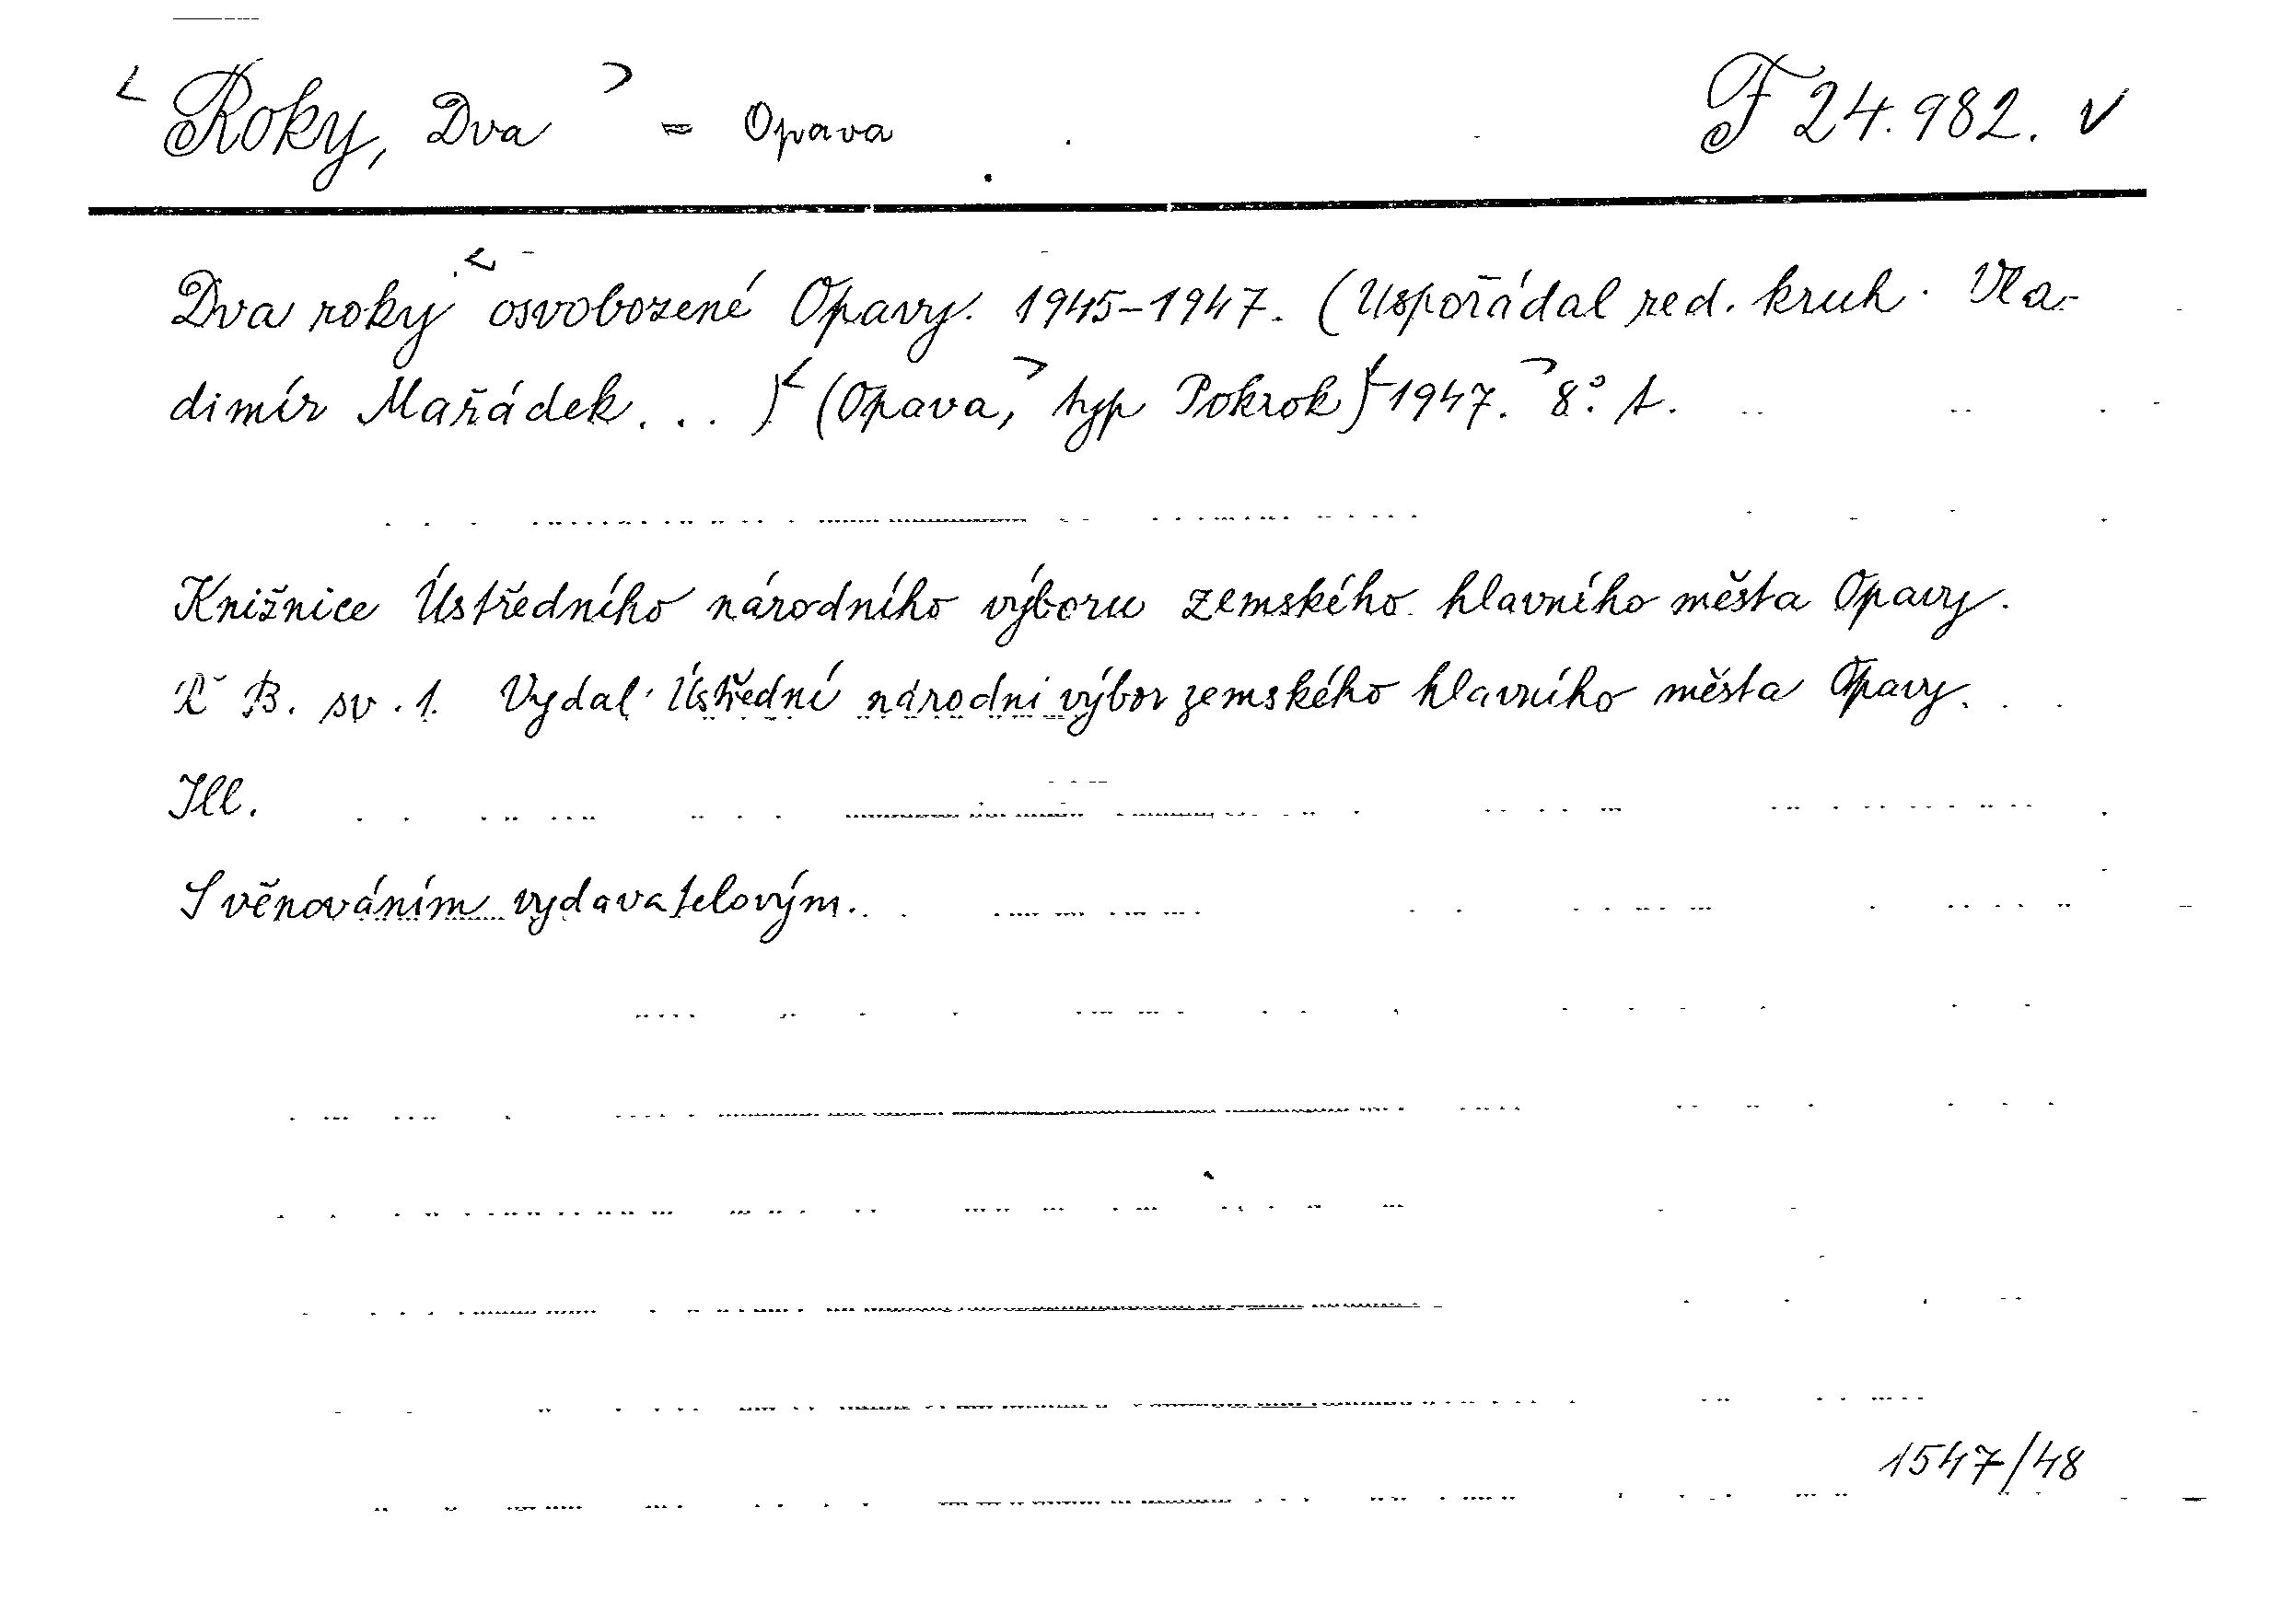 < Roky, Dva > = Opava F 24.982. v
Dva roky < osvobozené Opavy. 1945-1947. (Uspořádal red. kruh. Vla-
dimír Mařádek. . . ) < (Opava, > typ Pokrok) < 1947. > 8°. A.
Knižnice Ústředního národního výboru zemského hlavního města Opavy.
Ř B. sv. 1. Vydal Ústřední národni výbor zemského hlavního města Opavy.
Ill.
S věnováním vydavatelovým.
1547/48